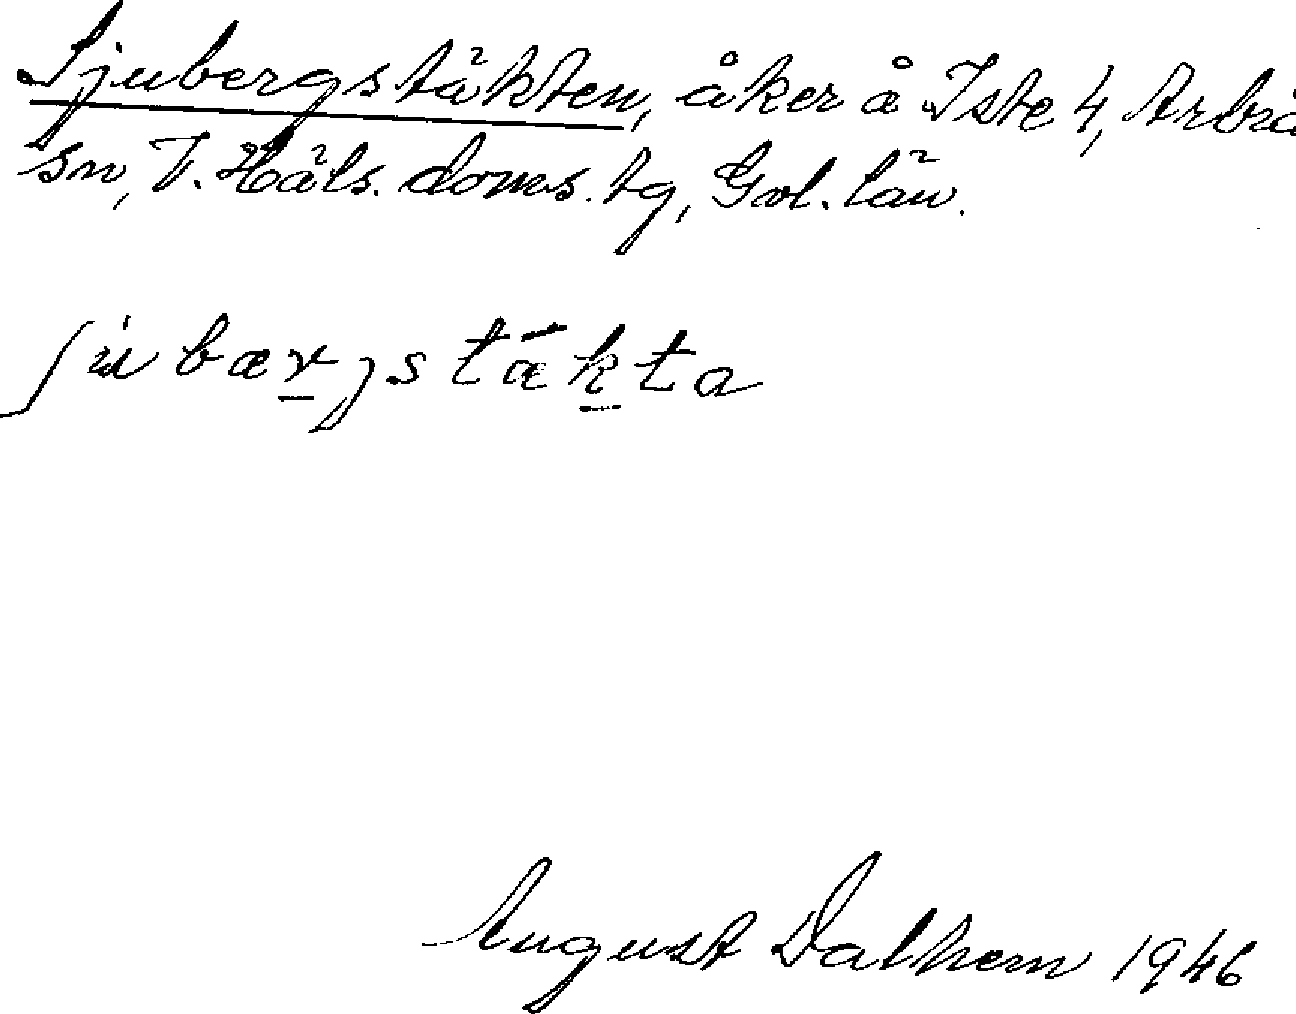 Ljubergstäkten, åker å Iste 4, Arbrå
sn, V. Häls. doms. tg, Gvl. län.
jubærgstækta
August Dalhem 1946